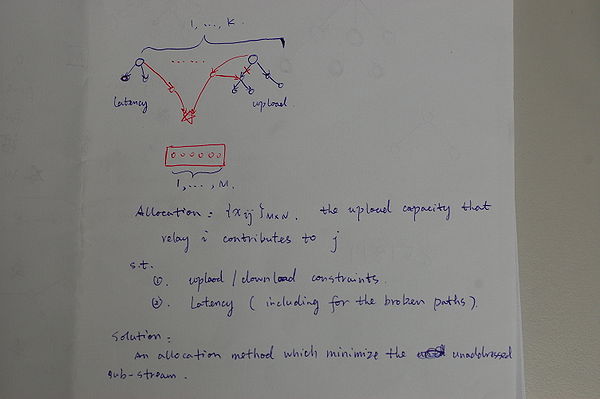 1, ..., K.
latency
upload
1, ..., M.
Allocation: {x ij} M×N. the upload capacity that
relay i contributes to j
s.t.
①. upload/download constraints.
②. Latency (including for the broken paths).
Solution:
An allocation method which minimize the unaddressed
sub-stream.